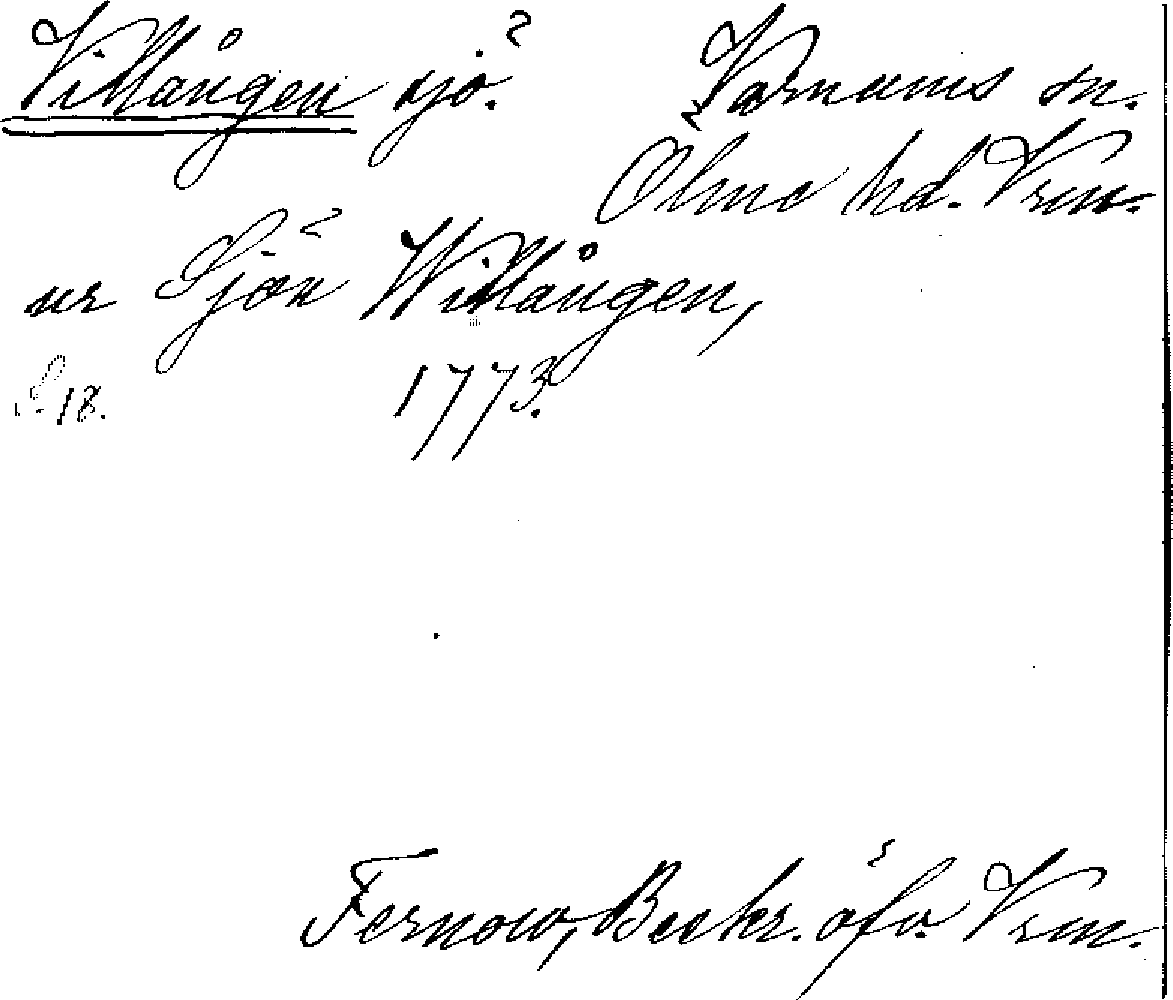 Vitlången sjö. Varnums sn.
Olme hd. Vrm.
ur Sjön Witlången,
S. 18. 1773.
Fernow, Beskr. öfv. Vrm.